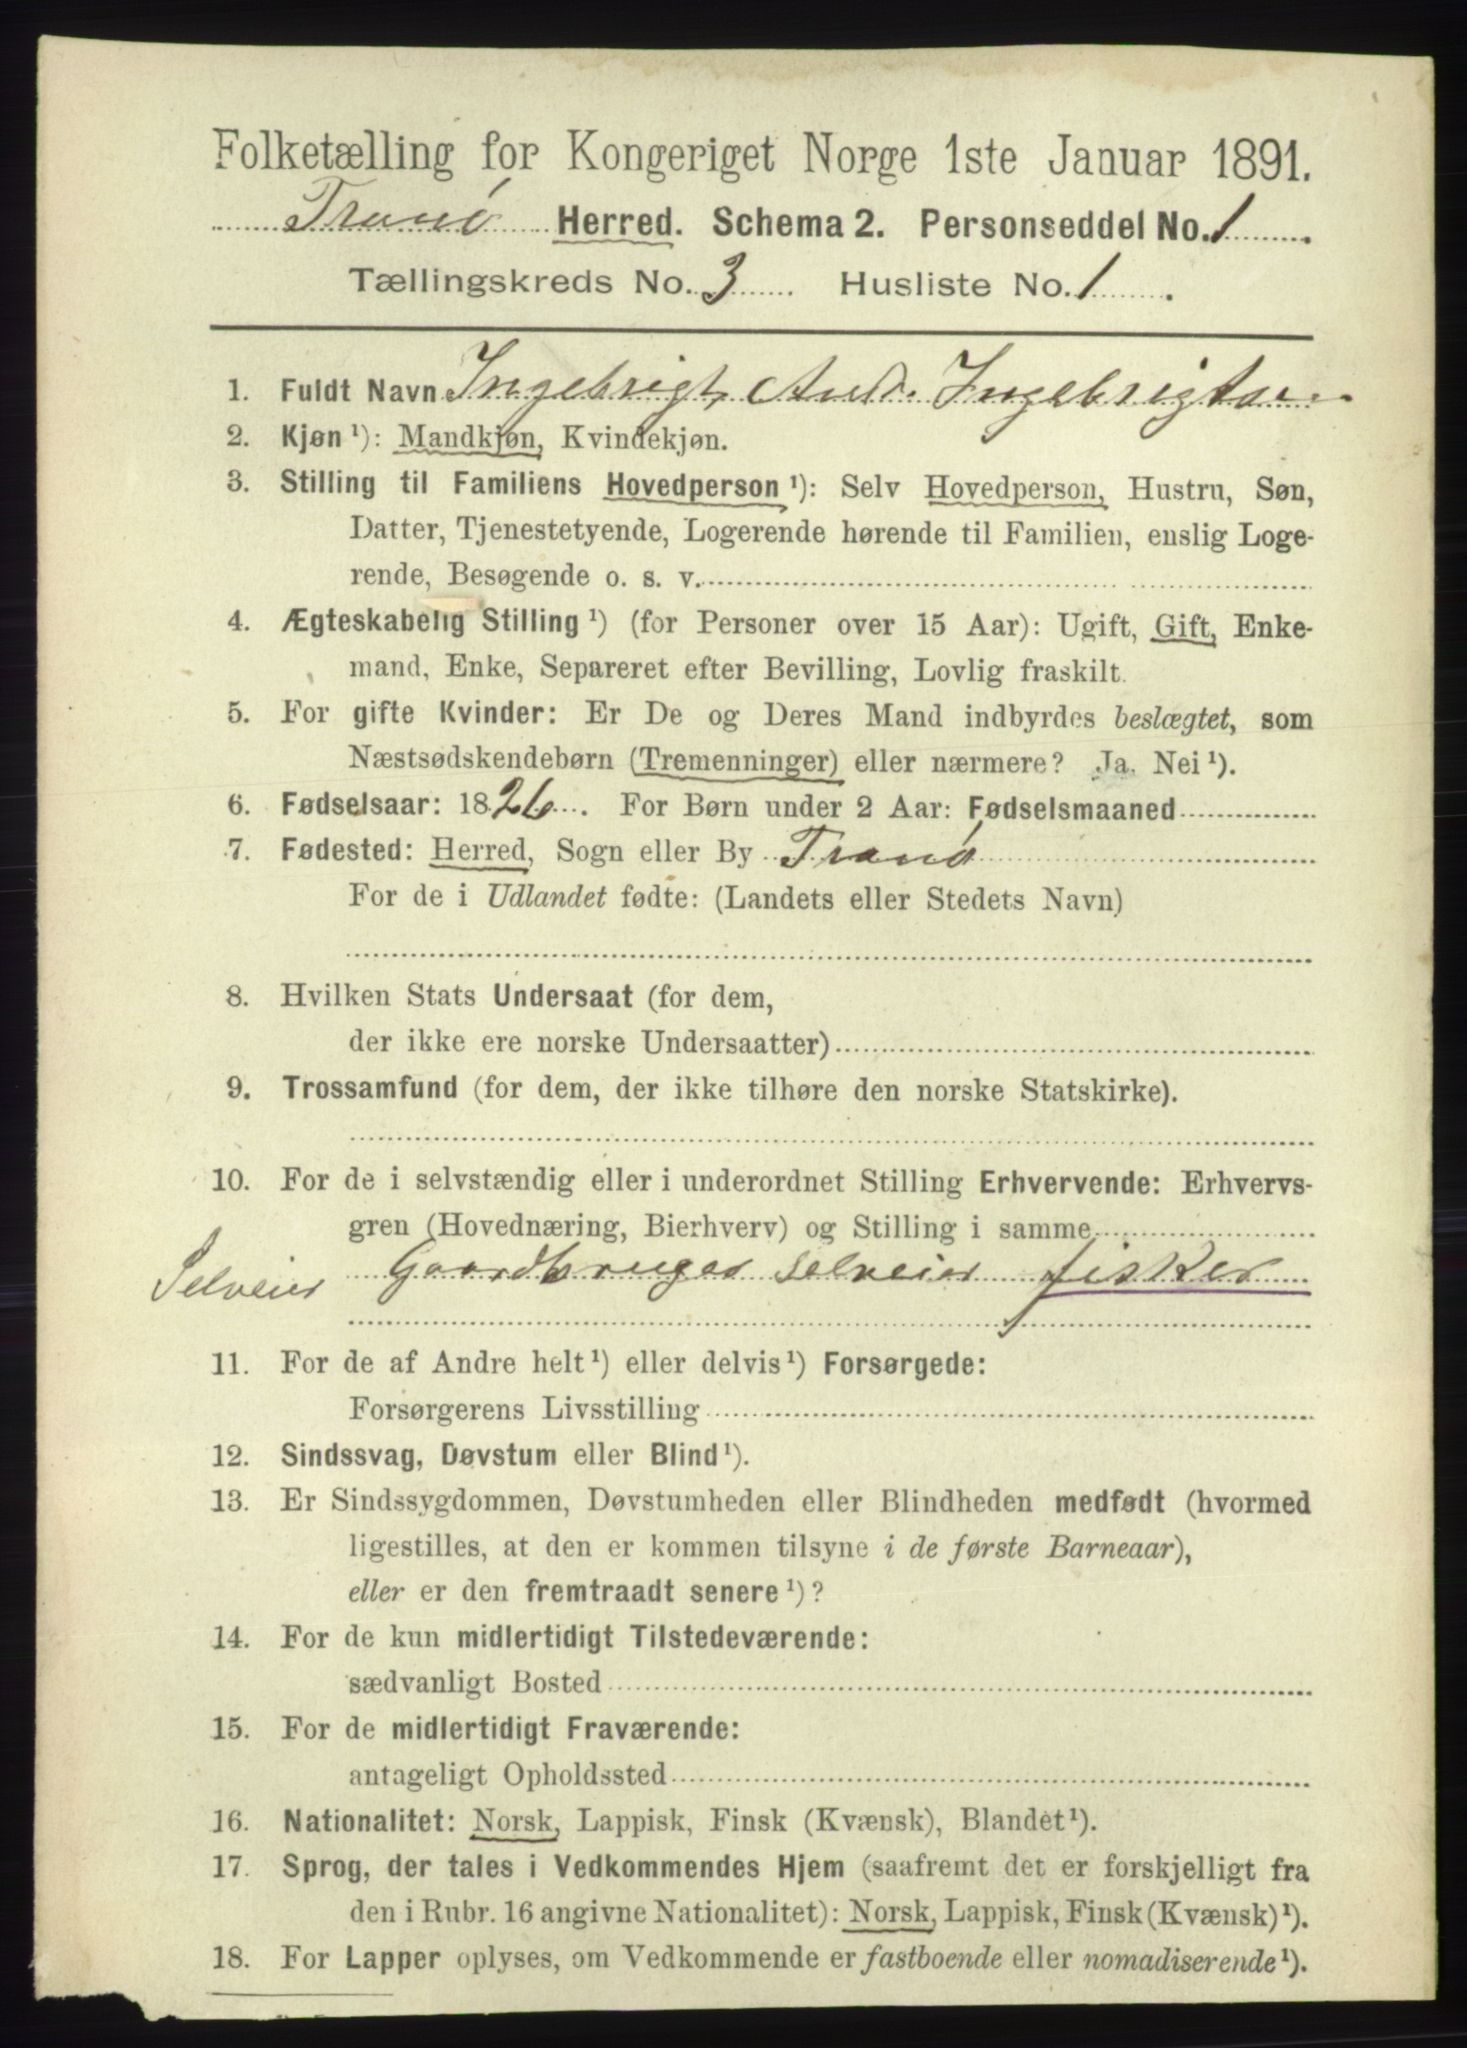 Folketælling for Kongeriget Norge 1ste Januar 1891.
Tranö Herred. Schema 2. Personseddel No. 1.
Tællingskreds No. 3 Husliste No. 1.
1. Fuldt Navn Ingebrigt And. Ingebrigtsen
2. Kjøn ¹): Mandkjøn, Kvindekjøn.
3. Stilling til Familiens Hovedperson ¹): Selv Hovedperson, Hustru, Søn,
Datter, Tjenestetyende, Logerende hørende til Familien, enslig Loge-
rende, Besøgende o. s. v.
4. Ægteskabelig Stilling ¹) (for Personer over 15 Aar): Ugift, Gift, Enke-
mand, Enke, Separeret efter Bevilling, Lovlig fraskilt.
5. For gifte Kvinder: Er De og Deres Mand indbyrdes beslægtet, som
Næstsødskendebørn (Tremenninger) eller nærmere? Ja, Nei ¹).
6. Fødselsaar: 1826. For Børn under 2 Aar: Fødselsmaaned
7. Fødested: Herred, Sogn eller By Tranö
For de i Udlandet fødte: (Landets eller Stedets Navn)
8. Hvilken Stats Undersaat (for dem,
der ikke ere norske Undersaatter)
9. Trossamfund (for dem, der ikke tilhøre den norske Statskirke).
10. For de i selvstændig eller i underordnet Stilling Erhvervende: Erhvervs-
gren (Hovednæring, Bierhverv) og Stilling i samme
Selveier Gaardbruger selveier fisker
11. For de af Andre helt ¹) eller delvis ¹) Forsørgede:
Forsørgerens Livsstilling
12. Sindssvag, Døvstum eller Blind ¹).
13. Er Sindssygdommen, Døvstumheden eller Blindheden medfødt (hvormed
ligestilles, at den er kommen tilsyne i de første Barneaar),
eller er den fremtraadt senere ¹)?
14. For de kun midlertidigt Tilstedeværende:
sædvanligt Bosted
15. For de midlertidigt Fraværende:
antageligt Opholdssted
16. Nationalitet: Norsk, Lappisk, Finsk (Kvænsk), Blandet ¹).
17. Sprog, der tales i Vedkommendes Hjem (saafremt det er forskjelligt fra
den i Rubr. 16 angivne Nationalitet): Norsk, Lappisk, Finsk (Kvænsk) ¹).
18. For Lapper oplyses, om Vedkommende er fastboende eller nomadiserende ¹).